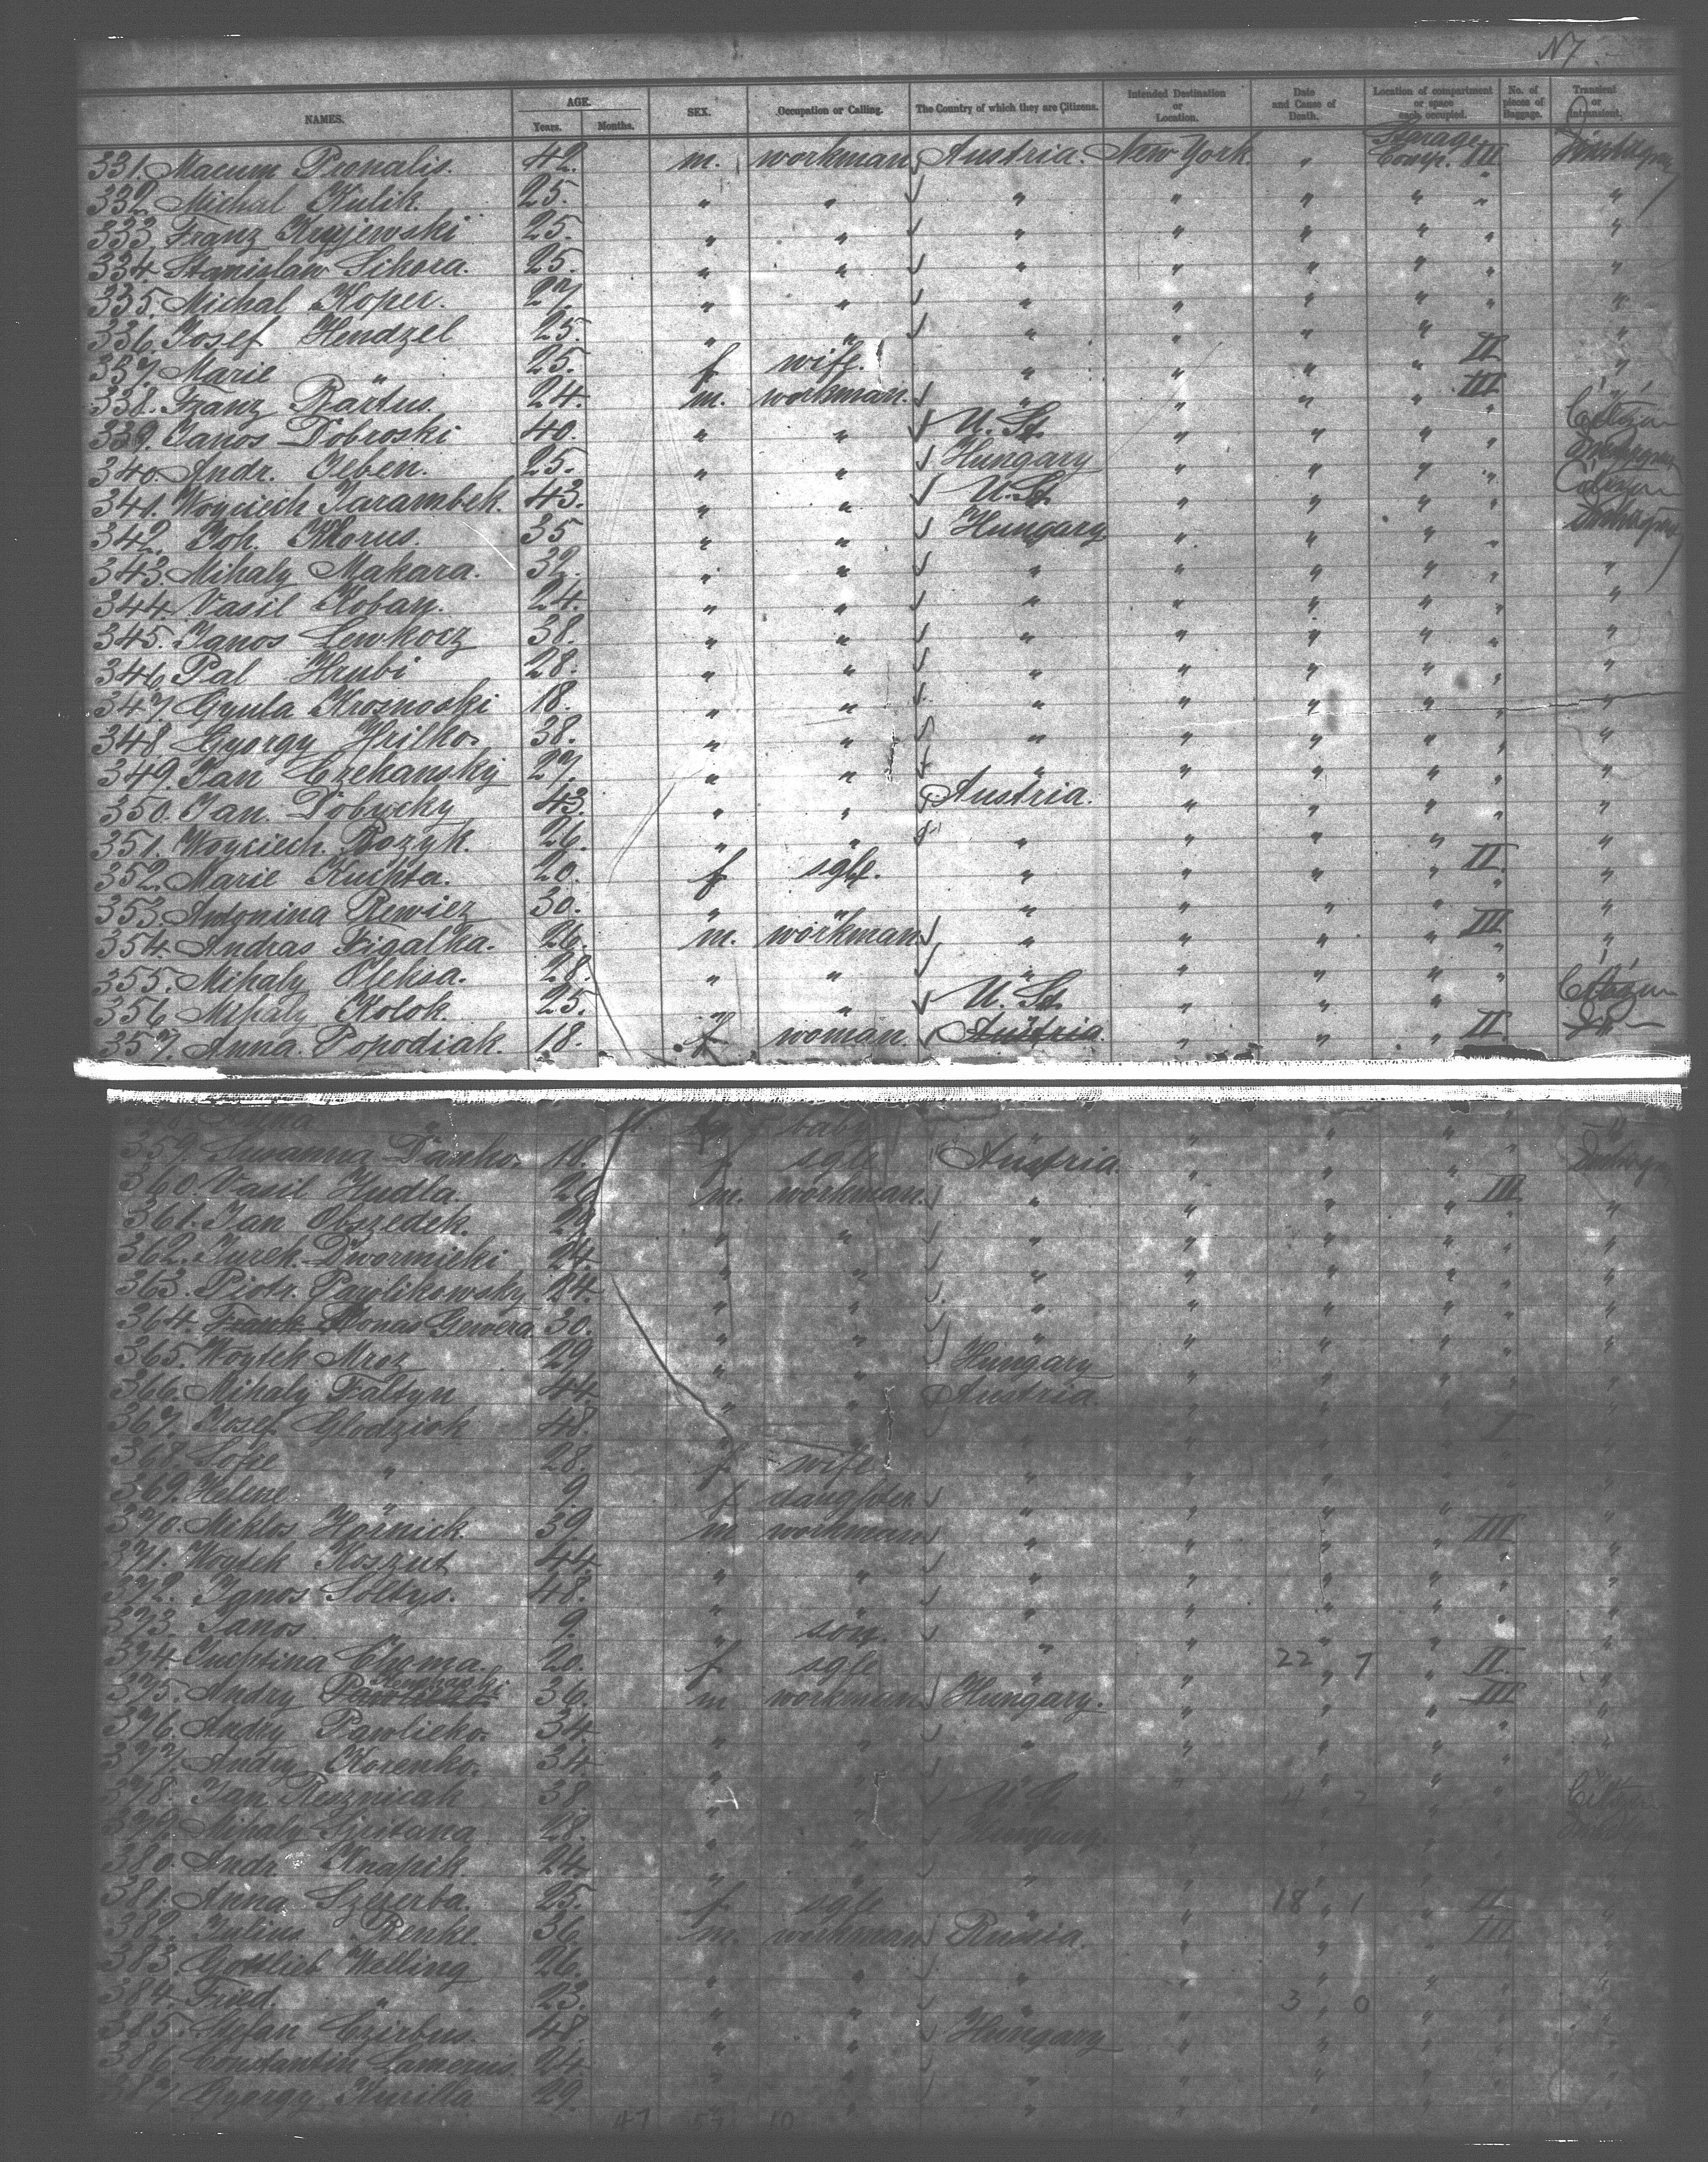 N7
NAMES. AGE. Years. Months. SEX. Occupation or Calling. The Country of which they are Citizens. Intended Destination or Location. Date and Cause of Death. Location of compartment or space each occupied. No. of pieces of Baggage. Transient or Intransient.
331. Macum Pronalis. 42. m. workman Austria. New York. " Comp. III
332. Michal Kulik. 25. " " " " " " " "
333. Franz Kujewski 25. " " " " " " " "
334. Stanislaw Sikora. 25. " " " " " " " "
335. Michal Koper. 27. " " " " " " " "
336. Josef Hendzel 25. " " " " " " "
337. Marie " 25. f wife. " " " " II "
338. Franz Bartus. 24. m. workman. " " " " III "
339. Janos Dobroski 40. " " U. St. " " " " Citizen
340. Andr. Ieben. 25. " " Hungary " " " "
341. Woyciech Jarambek. 43. " " U. St. " " " " Citizen
342. Joh. Khorus. 35 " " Hungary " " " "
343. Mihaly Makara. 32. " " " " " " " "
344. Vasil Koban. 24. " " " " " " " "
345. Janos Lewkocz 38. " " " " " " " "
346. Pal Hrubi 28. " " " " " " " "
347. Gyula Krosnoski 18. " " " " " " " "
348. Gyorgy Hrilko. 38. " " " " " " " "
349. Jan Czehansky 27. " " " " " " " "
350. Jan. Dobucky 43. " " Austria. " " " " "
351. Woyciech Bozyk. 26. " " " " " " " "
352. Marie Kuchta. 20. f sgle. " " " " II "
353. Antonina Rewiez 30. " " " " " " "
354. Andras Figalka. 26. m. workman " " " " III "
355. Mihaly Oleksa. 28. " " " " " " " "
356. Mihaly Kolok. 25. " " U. St. " " " " Citizen
357. Anna Popodiak. 18. f woman Austria. " " " II
" baby " " " " "
359. Susanna Danko. 18. f sgle Austria. " " " "
360. Vasil Hudla. 26 m. workman. " " " " III "
361. Jan Obszedek. 29 " " " " " " " "
362. Jurek Dwornicki 24. " " " " " " " "
363. Piotr. Pawlikowsky 24. " " " " " " " "
364. Frank Jonas Gewera 30. " " " " " " " "
365. Woytek Mroz 29 " " Hungary " " " " "
366. Mihaly Faltyn 44. " " Austria. " " " " "
367. Josef Glodziok 48. " " " " " I "
368. Sofie " 28. f wife " " " " "
369. Helene " 9 f daughter " " " " "
370. Miklos Hornick. 39. m workman " " " " III "
371. Woytek Koszut 44. " " " " " " " "
372. Janos Soltys. 48. " " " " " " " "
373. Janos " 9. " son. " " " " " "
374. Justina Choma. 20. f sgle " " 22 " 7 " II "
375. Andry 36. m workman Hungary. " " " III "
376. Andry Pawlicko. 34. " " " " " " " "
377. Andry Korenko. 34 " " " " " " " "
378. Jan Ruznicak 38 " " U. S. " 4 " 2 " " Citizen
379. Mihaly Siritana 28. " " Hungary. " " " "
380. Andr. Knapik. 24 " " " " " " " "
381. Anna Szczerba. 25. f sgle " " 18 " 1 " II "
382. Julius Renke. 36 m. workman Russia. " " " III "
383 Gottlieb Welling 26. " " " " " " " "
384. Fried. " 23. " " " " 3 " 0 " " "
385. Stefan Czirbus. 48. " " Hungary " " " " "
386 Constantin Lamerus. 24. " " " " " " " "
387 Gyorgy Kurilla 29. " " " " " " " "
47 10